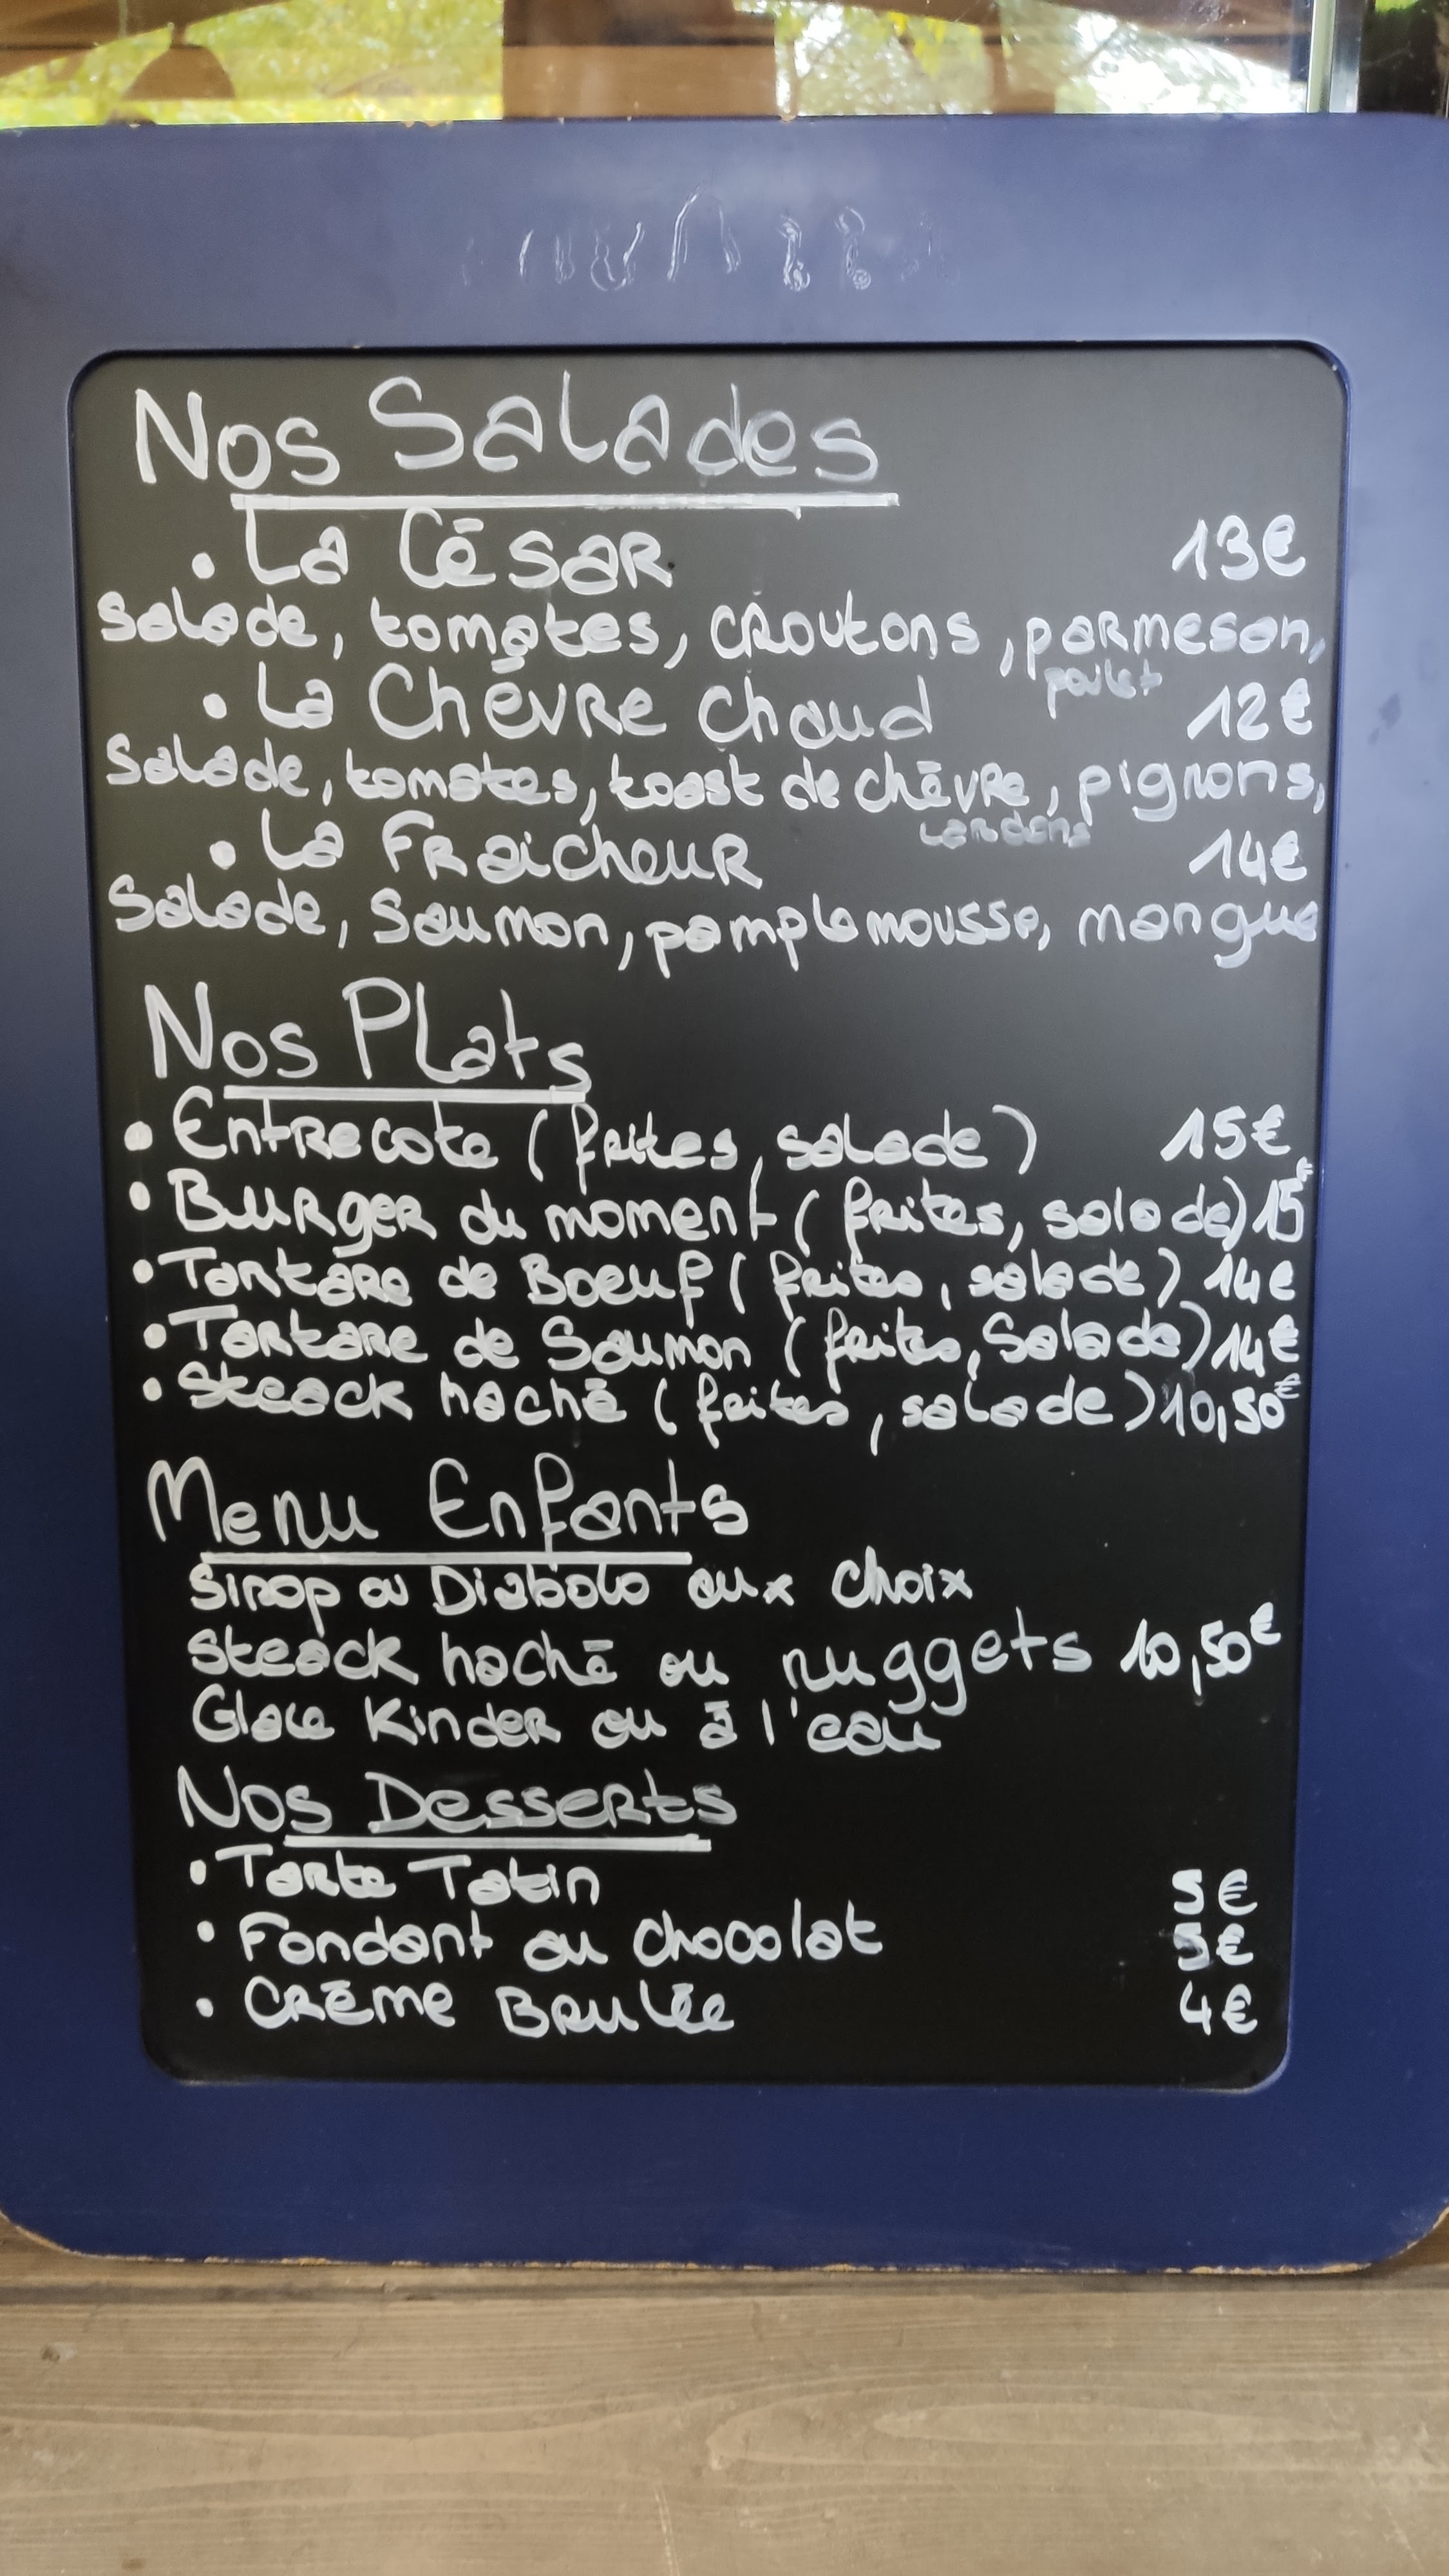 Nos Salades
• La César 13€
Salade, tomates, croutons, parmesan,
poulet
• La Chèvre chaud 12€
Salade, tomates, toast de chèvre, pignons,
Lardons
• La Fraicheur 14€
Salade, Saumon, pamplemousse, mangue
Nos Plats
• Entrecote (frites, salade) 15€
• Burger du moment (frites, salade) 15€
• Tartare de Boeuf (frites, salade) 14€
• Tartare de Saumon (frites, Salade) 14€
• Steack haché (frites, salade) 10,50€
Menu Enfants
Sirop ou Diabolo aux choix
Steack haché ou nuggets 10,50€
Glace Kinder ou à l'eau
Nos Desserts
• Tarte Tatin 5€
• Fondant au chocolat 5€
• Crème Brulée 4€